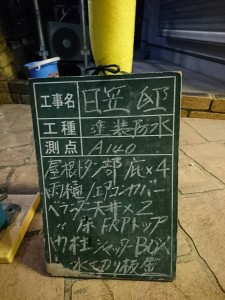 工事名 日笠 邸
工種 塗装防水
測点 A140
屋根トタン部 庇×4
雨樋/エアコンカバー
ベランダ天井×2
〃 床FRPトップ
内柱 シャッターBOX
水切り板金